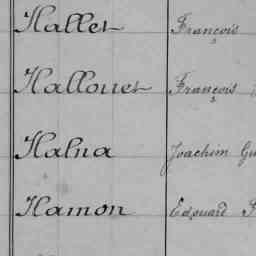 Hallet François
Hallouet François
Halna Joachim
Hamon Edouard